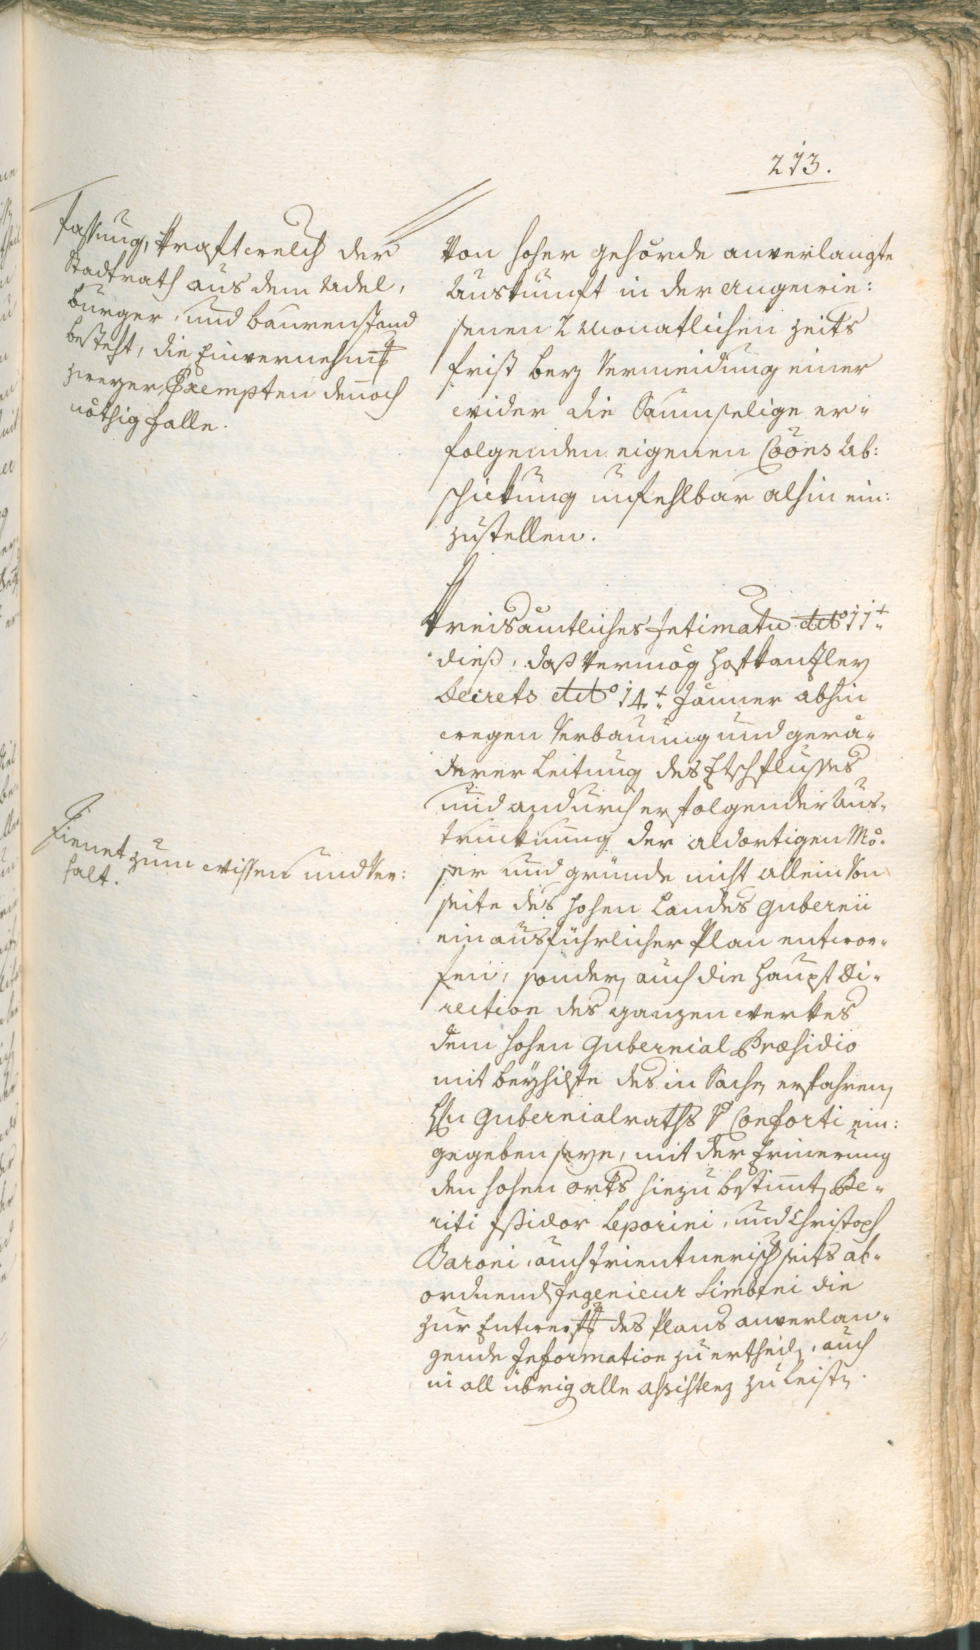 213.
fassung, kraft welch der
Stadtrath aus dem Adel,
burger, und baurenstand
besteht, die Einvernehmung
zweyer Exempten dennoch
nöthig falle.
Von hoher gehörde anverlangte
Auskunft in der angewie:
senen 2 monatlichen zeits
frist bey Vermeidung einer
wider die Saumselige er-
folgenden eigenen Coons Ab:
schickung unfehlbar alhin ein:
zustellen.
Kreisämtliches Intimatum ddto 11t
dieß, daß vermög hofkanzley
Decrets ddto 14t Jänner abhin
wegen Verbauung und gerä-
derer Leitung des Etschflusses
und andurch erfolgender Aus-
trucknung der aldortigen Mö-
ser und gründe nicht allein von
seite des hohen Landes gubernii
ein ausführlicher Plan entwor-
fen, sondern auch die haupt Di-
rection des ganzen werkes
dem hohen Gubernial Præsidio
mit beyhilfe des in Sachen erfahrenen
Hn Gubernialraths v Conforti ein:
gegeben seye, mit der Erinerung
den hohen orts hiezu bestimmten Pe-
riti Isidor Leporini, und Christoph
Baroni, auch trientnerischseits ab-
ordnend Ingenieur Simbeni die
zur Entwerfung des Plans anverlan-
gende Information zu ertheilen, auch
in all übrig alle assistenz zu leisten.
Dienet zum wissen und Ver:
halt.